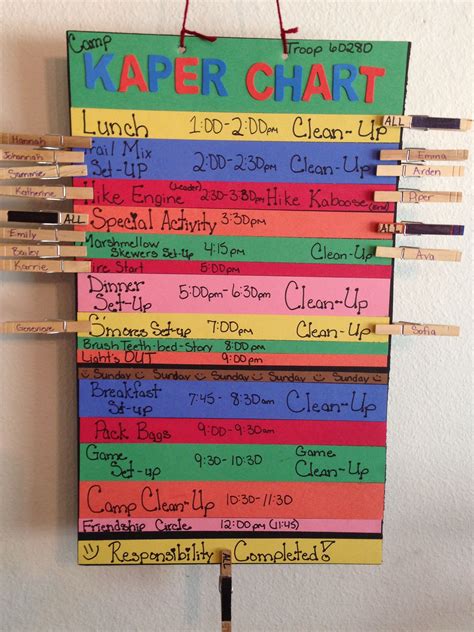 Camp Troop 60280
KAPER CHART
ALL
Lunch 1:00-2:00pm Clean-Up
Hannah Trail Mix Emma
Johannah Set-UP 2:00-2:30pm Clean-Up Arden
Katherine Hike Engine (Leader) 2:30-3:30pm Hike Kaboose (End) Piper
ALL Special Activity 3:30pm ALL
Emily Marshmallow
Bailey Skewers Set-Up 4:15pm Clean-Up Ava
Karrie Fire Start 5:00pm
Dinner
Set-Up 5:00pm-6:30pm Clean-Up
Genevieve S'mores Set-up 7:00pm Clean-Up Sofia
Brush Teeth-bed-Story 8:00pm
Light's OUT 9:00pm
Sunday Sunday Sunday Sunday Sunday
Breakfast
Set-up 7:45-8:30am Clean-Up
Pack Bags 9:00-9:30am
Game Game
Set-up 9:30-10:30 Clean-Up
Camp Clean-Up 10:30-11:30
Friendship Circle 12:00pm (11:45)
Responsibility Completed!
ALL